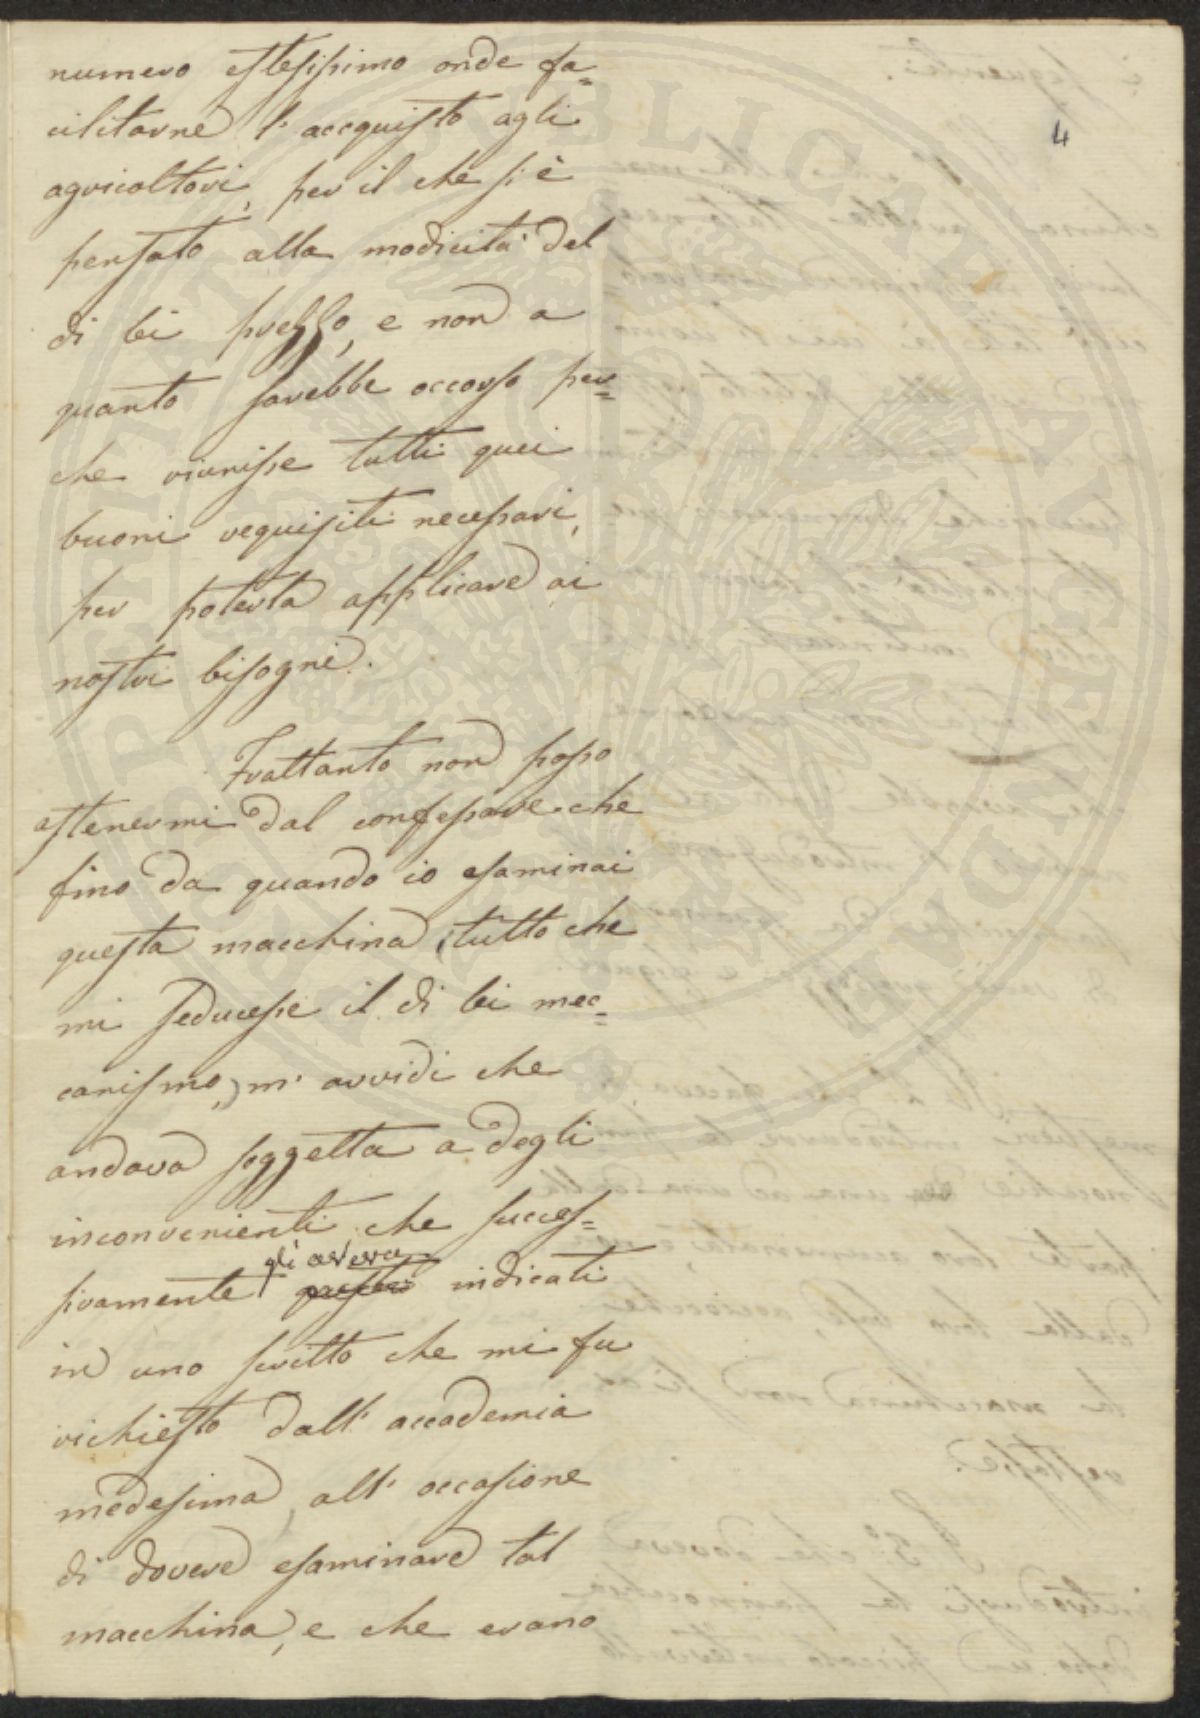 4
numero estesissimo onde fa=
cilitarne l'accquisto agli
agricoltori, per il che si è
pensato alla modicità del
di lei prezzo, e non a
quanto sarebbe occorso per=
che riunisse tutti quei
buoni requisiti necessari,
per poterla applicare ai
nostri bisogni.
Frattanto non posso
astenermi dal confessare che
fino da quando io esaminai
questa macchina (tutto che
mi seducesse il di lei mec=
canismo,) m'avvidi che
andava soggetta a degli
inconvenienti che succes=
gli aveva
sivamente questi indicati
in uno scritto che mi fu
richiesto dall'accademia
medesima, all'occasione
di dovere esaminare tal
macchina, e che erano